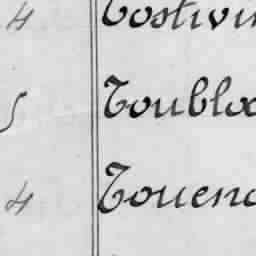 4 Tostivi
5 Toublo
4 Touen